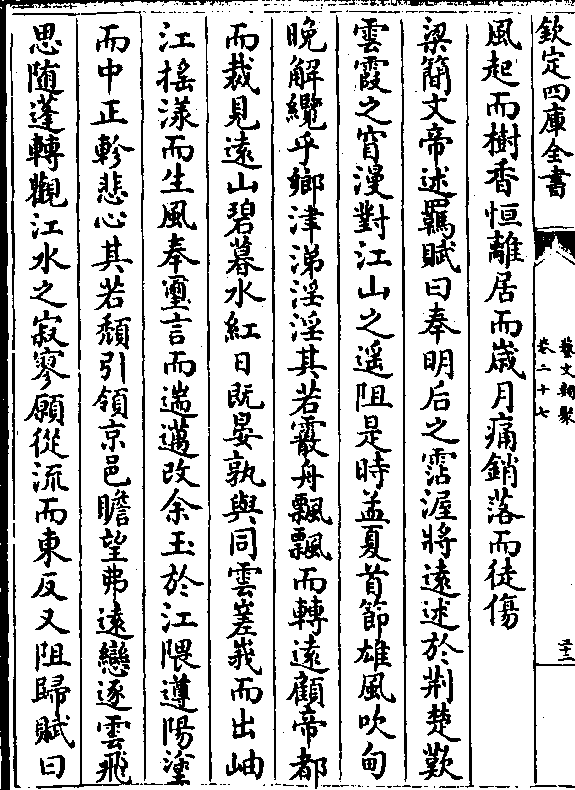 欽定四庫全書
藝文類聚
卷二十七
三十二
風起而樹香恒離居而歲月痛銷落而徒傷
梁簡文帝述羈賦曰奉明后之霑渥將遠述於荆楚歎
雲霞之窅漫對江山之遥阻是時孟夏首節雄風吹甸
晚解纜乎鄉津涕淫淫其若霰舟飄飄而轉遠顧帝都
而裁見遠山碧暮水紅日既晏孰與同雲嵳峩而出岫
江揺漾而生風奉璽言而遄邁改余玉於江隈遵陽塗
而中正軫悲心其若頽引領京邑瞻望弗遠戀逐雲飛
思随蓬轉觀江水之寂寥願從流而東反又阻歸賦曰